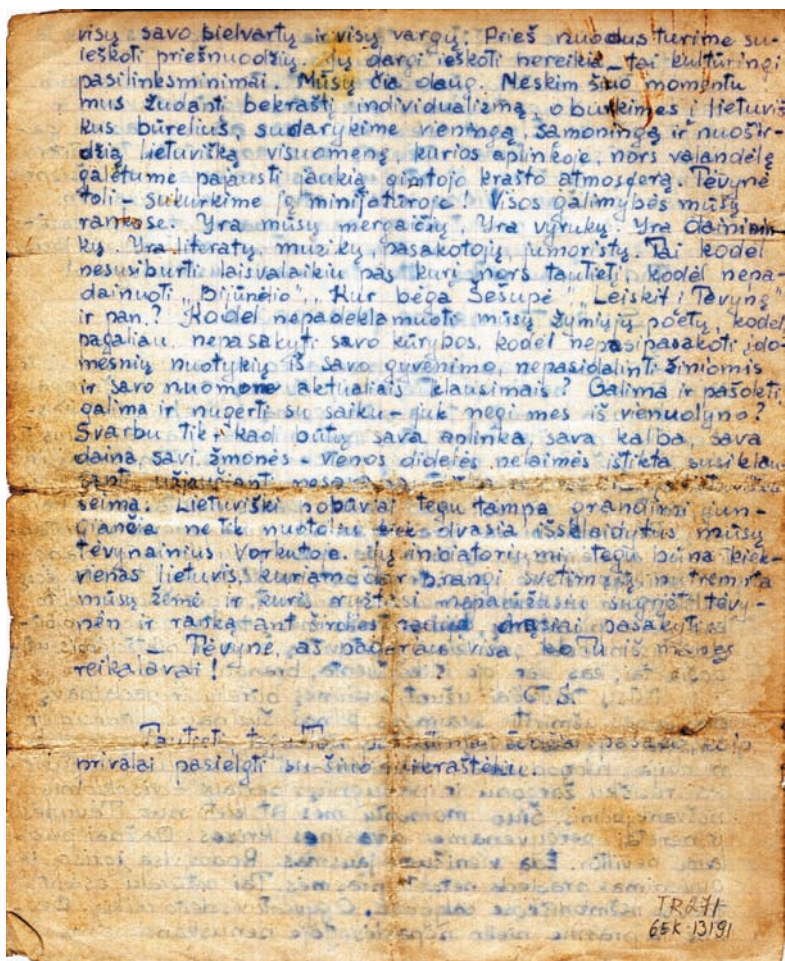 visų savo bielvartų ir visų vargų. Prieš nuodus turime su-
ieškoti priešnuodžių. Jų dargi ieškoti nereikia – tai kultūringi
pasilinksminimai. Mūsų čia daug. Meskim šiuo momentu
mus žudantį bekraštį individualizmą, o burkimės į lietuviš-
kus būrelius, sudarykime vieningą, sąmoningą ir nuošir-
džią lietuvišką visuomenę, kurios aplinkoje, nors valandėlę
galėtume pajausti jaukią gimtojo krašto atmosferą. Tėvynė
toli – sukurkime ją minijatūroje! Visos galimybės mūsų
rankose. Yra mūsų mergaičių. Yra vyrukų. Yra daininin-
kų. Yra literatų, muzikų, pasakotojų, jumoristų. Tai kodėl
nesusiburti laisvalaikiu pas kurį nors tautietį, kodėl nepa-
dainuoti „Bijūnėlio", „Kur bėga Šešupė" „Leiskit į Tėvynę"
ir pan.? Kodėl nepadeklamuoti mūsų žymiųjų poetų, kodėl
pagaliau, nepasakyti savo kūrybos, kodėl nepasipasakoti įdo-
mesnių nuotykių iš savo gyvenimo, nepasidalinti žiniomis
ir savo nuomone aktualiais klausimais? Galima ir pašokti,
galima ir nugerti su saiku – juk negi mes iš vienuolyno?
Svarbu tik, kad būtų sava aplinka, sava kalba, sava
daina, savi žmonės – vienos didelės nelaimės ištikta
šeima. Lietuviški pobūviai tegu tampa grandimi jun-
giančia ne tik nuotoliu dvasia išsklaidytus mūsų
tėvynainius Vorkutoje. Jų iniciatoriumi tegu būna kiek-
vienas lietuvis, kuriam dar brangi svetimųjų nutrempta
mūsų žemė ir kuris ryžtasi nepalūžusiu sugrįžt tėvy-
nėn ir ranką ant širdies padėjus drąsiai pasakyti:
– Tėvyne, aš padariau visa, ko Tu iš manęs
reikalavai!
G. S.
Tautieti,
privalai pasielgti su šiuo laikraštėliu
TR 271
GEK 13191